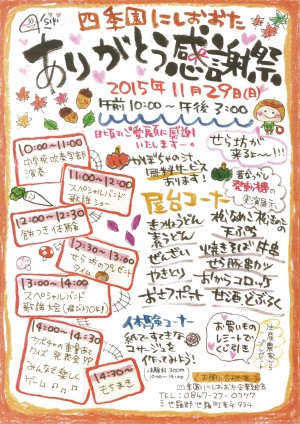 siki
四季園にしおおた
ありがとう感謝祭
2015年11月29日(日)
午前10:00～午後3:00
日頃のご愛顧に感謝
いたします…。
せら坊が
来るよ～!!!
10:00～11:00
中学校吹奏学部
演奏
かぼちゃの汁
無料サービス
あります!
昔なつかし
発動機の
実演展示
11:00～12:00
スペシャルバンド
歌謡ショー
12:00～12:30
餅つき体験
12:30～13:00
せら坊のプレゼント
タイム
13:00～14:00
スペシャルバンド
歌謡大会(飛び入りOK)
14:00～14:30
カボチャの重量あて
クイズ発表会
みんなで楽しく
ゲーム
14:30～
もちまき
屋台コーナー
まつねうどん
肉うどん
ぜんざい
やきとり
おさつポテト
天ぷら
焼きそば 牛串
せら豚串カツ
おからコロッケ
甘酒 どぶろく
体験コーナー
紙ですてきな
コサージュを
作ってみよう!
体験料 300円
お買いもの
レシートで
くじ引き
お問い合わせ先
四季園にしおおた企業組合
TEL:0847-27-0777
世羅郡世羅町黒川934